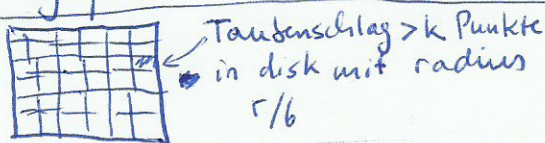 Taubenschlag > k Punkte
in disk mit radius
r/6